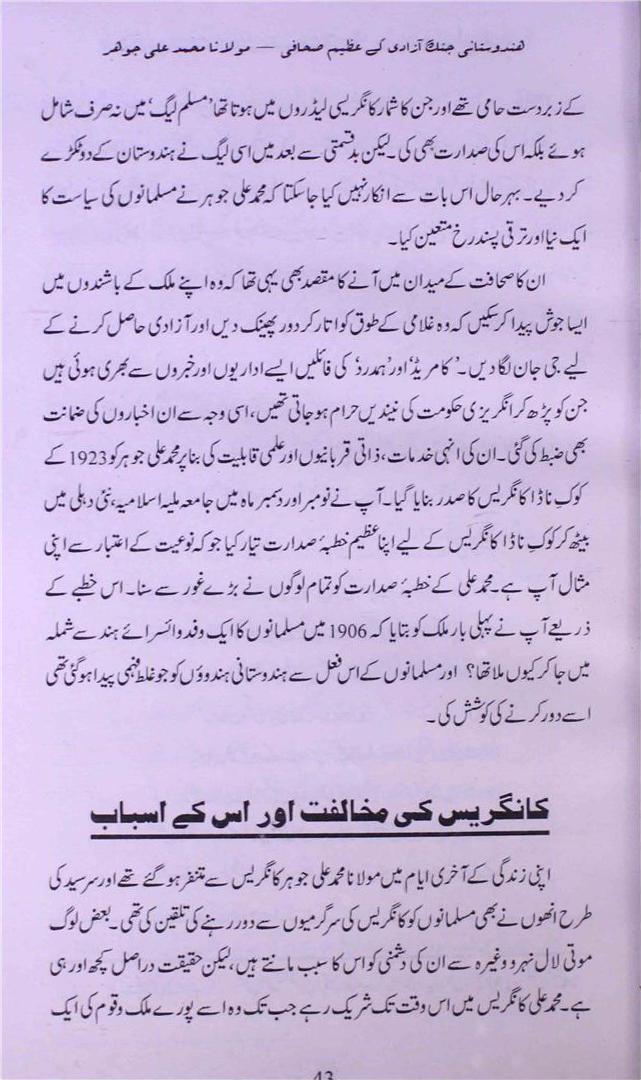 هندوستانی جنگ آزادی کے عظیم صحافی — مولانا محمد علی جوهر
کے زبردست حامی تھے اور جن کا شمار کانگریسی لیڈروں میں ہوتا تھا ’مسلم لیگ‘ میں نہ صرف شامل
ہوئے بلکہ اس کی صدارت بھی کی۔ لیکن بدقسمتی سے بعد میں اسی لیگ نے ہندوستان کے دو ٹکڑے
کر دیے۔ بہرحال اس بات سے انکار نہیں کیا جا سکتا کہ محمد علی جوہر نے مسلمانوں کی سیاست کا
ایک نیا اور ترقی پسند رخ متعین کیا۔
ان کا صحافت کے میدان میں آنے کا مقصد بھی یہی تھا کہ وہ اپنے ملک کے باشندوں میں
ایسا جوش پیدا کر سکیں کہ وہ غلامی کے طوق کو اتار کر دور پھینک دیں اور آزادی حاصل کرنے کے
لیے جی جان لگا دیں۔ ’کامریڈ‘ اور ’ہمدرد‘ کی فائلیں ایسے اداریوں اور خبروں سے بھری ہوئی ہیں
جن کو پڑھ کر انگریزی حکومت کی نیندیں حرام ہو جاتی تھیں، اسی وجہ سے ان اخباروں کی ضمانت
بھی ضبط کی گئی۔ ان کی انہی خدمات، ذاتی قربانیوں اور علمی قابلیت کی بنا پر محمد علی جوہر کو 1923 کے
کوک ناڈا کانگریس کا صدر بنایا گیا۔ آپ نے نومبر اور دسمبر ماہ میں جامعہ ملیہ اسلامیہ، نئی دہلی میں
بیٹھ کر کوک ناڈا کانگریس کے لیے اپنا عظیم خطبۂ صدارت تیار کیا جو کہ نوعیت کے اعتبار سے اپنی
مثال آپ ہے۔ محمد علی کے خطبۂ صدارت کو تمام لوگوں نے بڑے غور سے سنا۔ اس خطبے کے
ذریعے آپ نے پہلی بار ملک کو بتایا کہ 1906 میں مسلمانوں کا ایک وفد وائسرائے ہند سے شملہ
میں جا کر کیوں ملا تھا؟ اور مسلمانوں کے اس فعل سے ہندوستانی ہندوؤں کو جو غلط فہمی پیدا ہو گئی تھی
اسے دور کرنے کی کوشش کی۔
کانگریس کی مخالفت اور اس کے اسباب
اپنی زندگی کے آخری ایام میں مولانا محمد علی جوہر کانگریس سے متنفر ہو گئے تھے اور سرسید کی
طرح انھوں نے بھی مسلمانوں کو کانگریس کی سرگرمیوں سے دور رہنے کی تلقین کی تھی۔ بعض لوگ
موتی لال نہرو وغیرہ سے ان کی دشمنی کو اس کا سبب مانتے ہیں، لیکن حقیقت دراصل کچھ اور ہی
ہے۔ محمد علی کانگریس میں اس وقت تک شریک رہے جب تک وہ اسے پورے ملک و قوم کی ایک
43